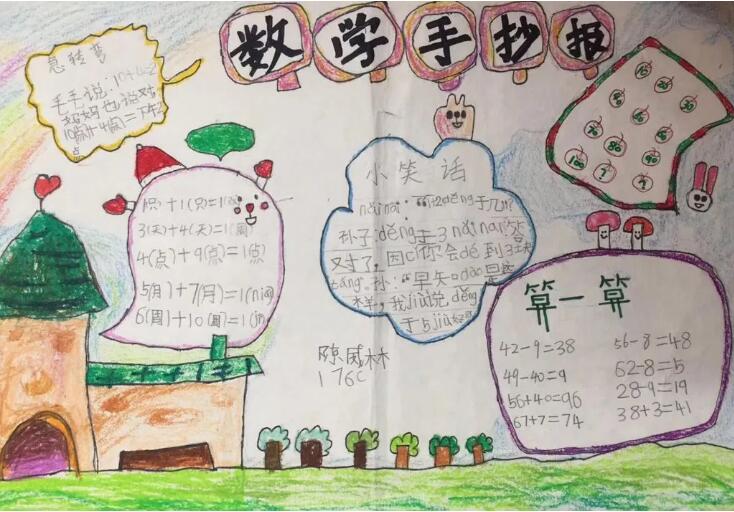 数学手抄报
急转弯
毛毛说:10+4=2
妈妈也说对
10点+4点=下午2
点
1只+1(只)=1(双)
3(天)+4(天)=1(周)
4(点)+9(点)=1(点)
5(月)+7(月)=1(nián)
6(周)+10(周)=1
小笑话
nǎinai:"1+2děng于几?"
孙子:děng于3 nǎinai:答
对了,因cǐ你会dé到3块
táng。孙:"早知dào是这
样,我jiù说děng
于5jiù好
陈威林
176C
10
20
30
50
60
70
80
90
100
?
?
算一算
42-9=38
56-8=48
49-40=9
62-8=5
56+40=96
28-9=19
67+7=74
38+3=41